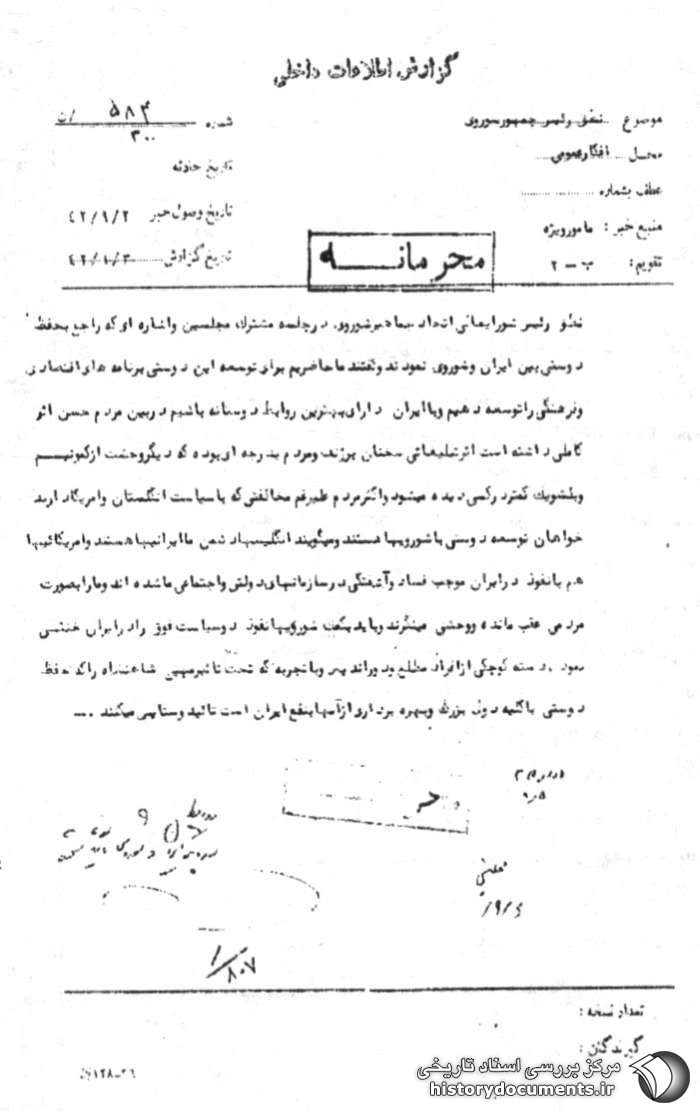 گزارش اطلاعات داخلی
موضوع نطق رئیس جمهور شوروی
شماره ۵۸۴ / ۳۰۰
محل افکار عمومی
تاریخ حادثه
عطف بشماره
تاریخ وصول خبر ۴۲/۹/۲
منبع خبر : مامور ویژه
تاریخ گزارش
تقویم : ب - ۲
محرمانه
نطق رئیس شورایعالی اتحاد جماهیر شوروی در جلسه مشترک مجلسین و اشاره ای که راجع بحفظ
دوستی بین ایران و شوروی نمودند و گفتند ما حاضریم برای توسعه این دوستی برنامه های اقتصادی
و فرهنگی را توسعه دهیم و با ایران دارای بهترین روابط دوستانه باشیم در بین مردم حسن اثر
کاملی داشته است اثر تبلیغاتی سخنان برژنف و مردم بدرجه ای بوده که دیگر وحشت از کمونیسم
و بلشویک کمتر در کسی دیده میشود و اکثر مردم علیرغم مخالفتی که با سیاست انگلستان و امریکا دارند
خواهان توسعه دوستی با شورویها هستند و میگویند انگلیسها دشمن ما ایرانیها هستند و امریکائیها
هم با نفوذ در ایران موجب فساد و آشفتگی در سازمانهای دولتی و اجتماعی ما شده اند و ما را بصورت
مردمی عقب مانده و وحشی مینگرند و باید بکمک شورویها نفوذ دو سیاست فوق را در ایران خنثی
نمود. دسته کوچکی از افراد مطلع و دوراندیش و با تجربه که تحت تاثیر میهن شاهنشاه را که حفظ
دوستی با کلیه دول بزرگ و بهره برداری از آنها بنفع ایران است تائید و ستایش میکنند ...
۱/۸۰۷
تعداد نسخه :
گیرندگان :
مرکز بررسی اسناد تاریخی
historydocuments.ir